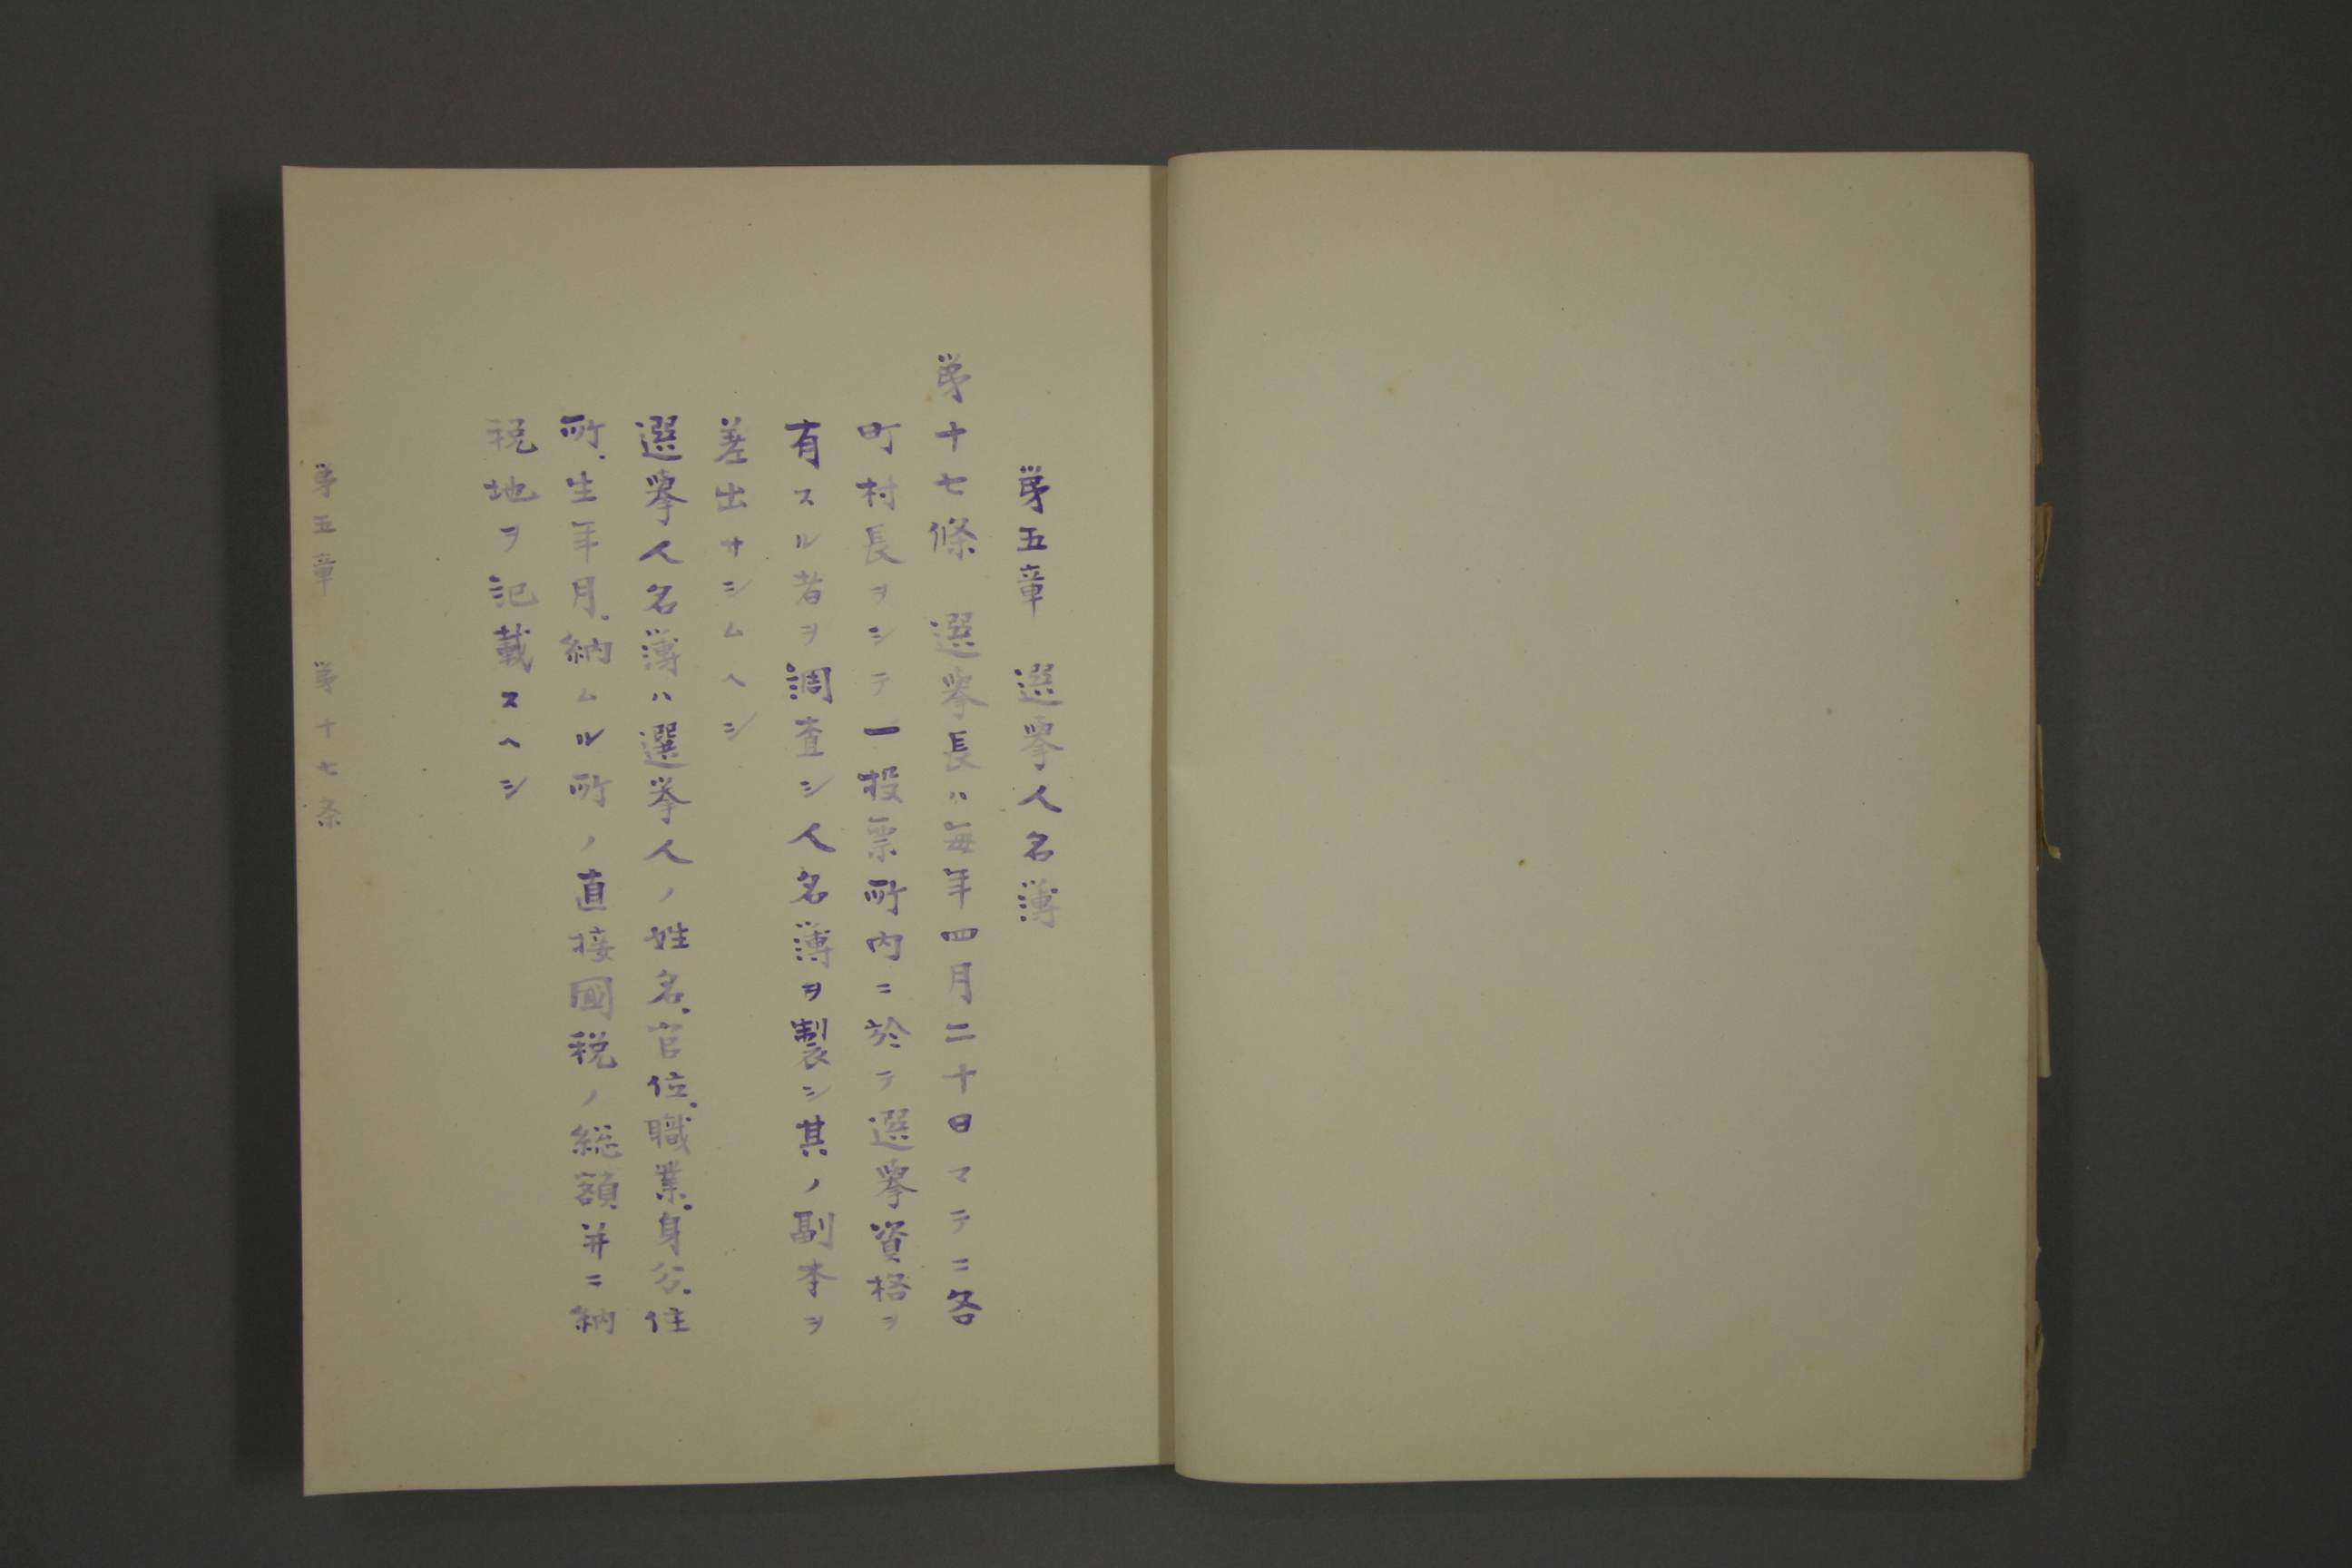 第五章　選擧人名簿
第十七條　選擧長ハ毎年四月二十日マテニ各
町村長ヲシテ一投票所内ニ於テ選擧資格ヲ
有スル者ヲ調査シ人名簿ヲ製シ其ノ副本ヲ
差出サシムヘシ
選擧人名簿ハ選挙人ノ姓名、官位、職業、身分、住
所、生年月、納ムル所ノ直接國税ノ総額并ニ納
税地ヲ記載スヘシ
第五章　第十七条